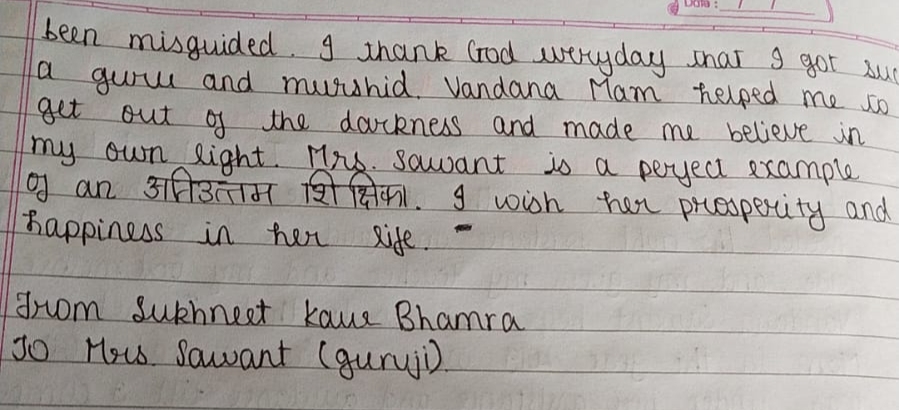 Date : / /
been misguided. I thank God everyday that I got suc
a guru and murshid. Vandana Mam helped me to
get out of the darkness and made me believe in
my own light. Mrs. Sawant is a perfect example
of an अतिउत्तम शिक्षिका. I wish her prosperity and
happiness in her life. -
From Sukhneet Kaur Bhamra
To Mrs. Sawant (guruji).